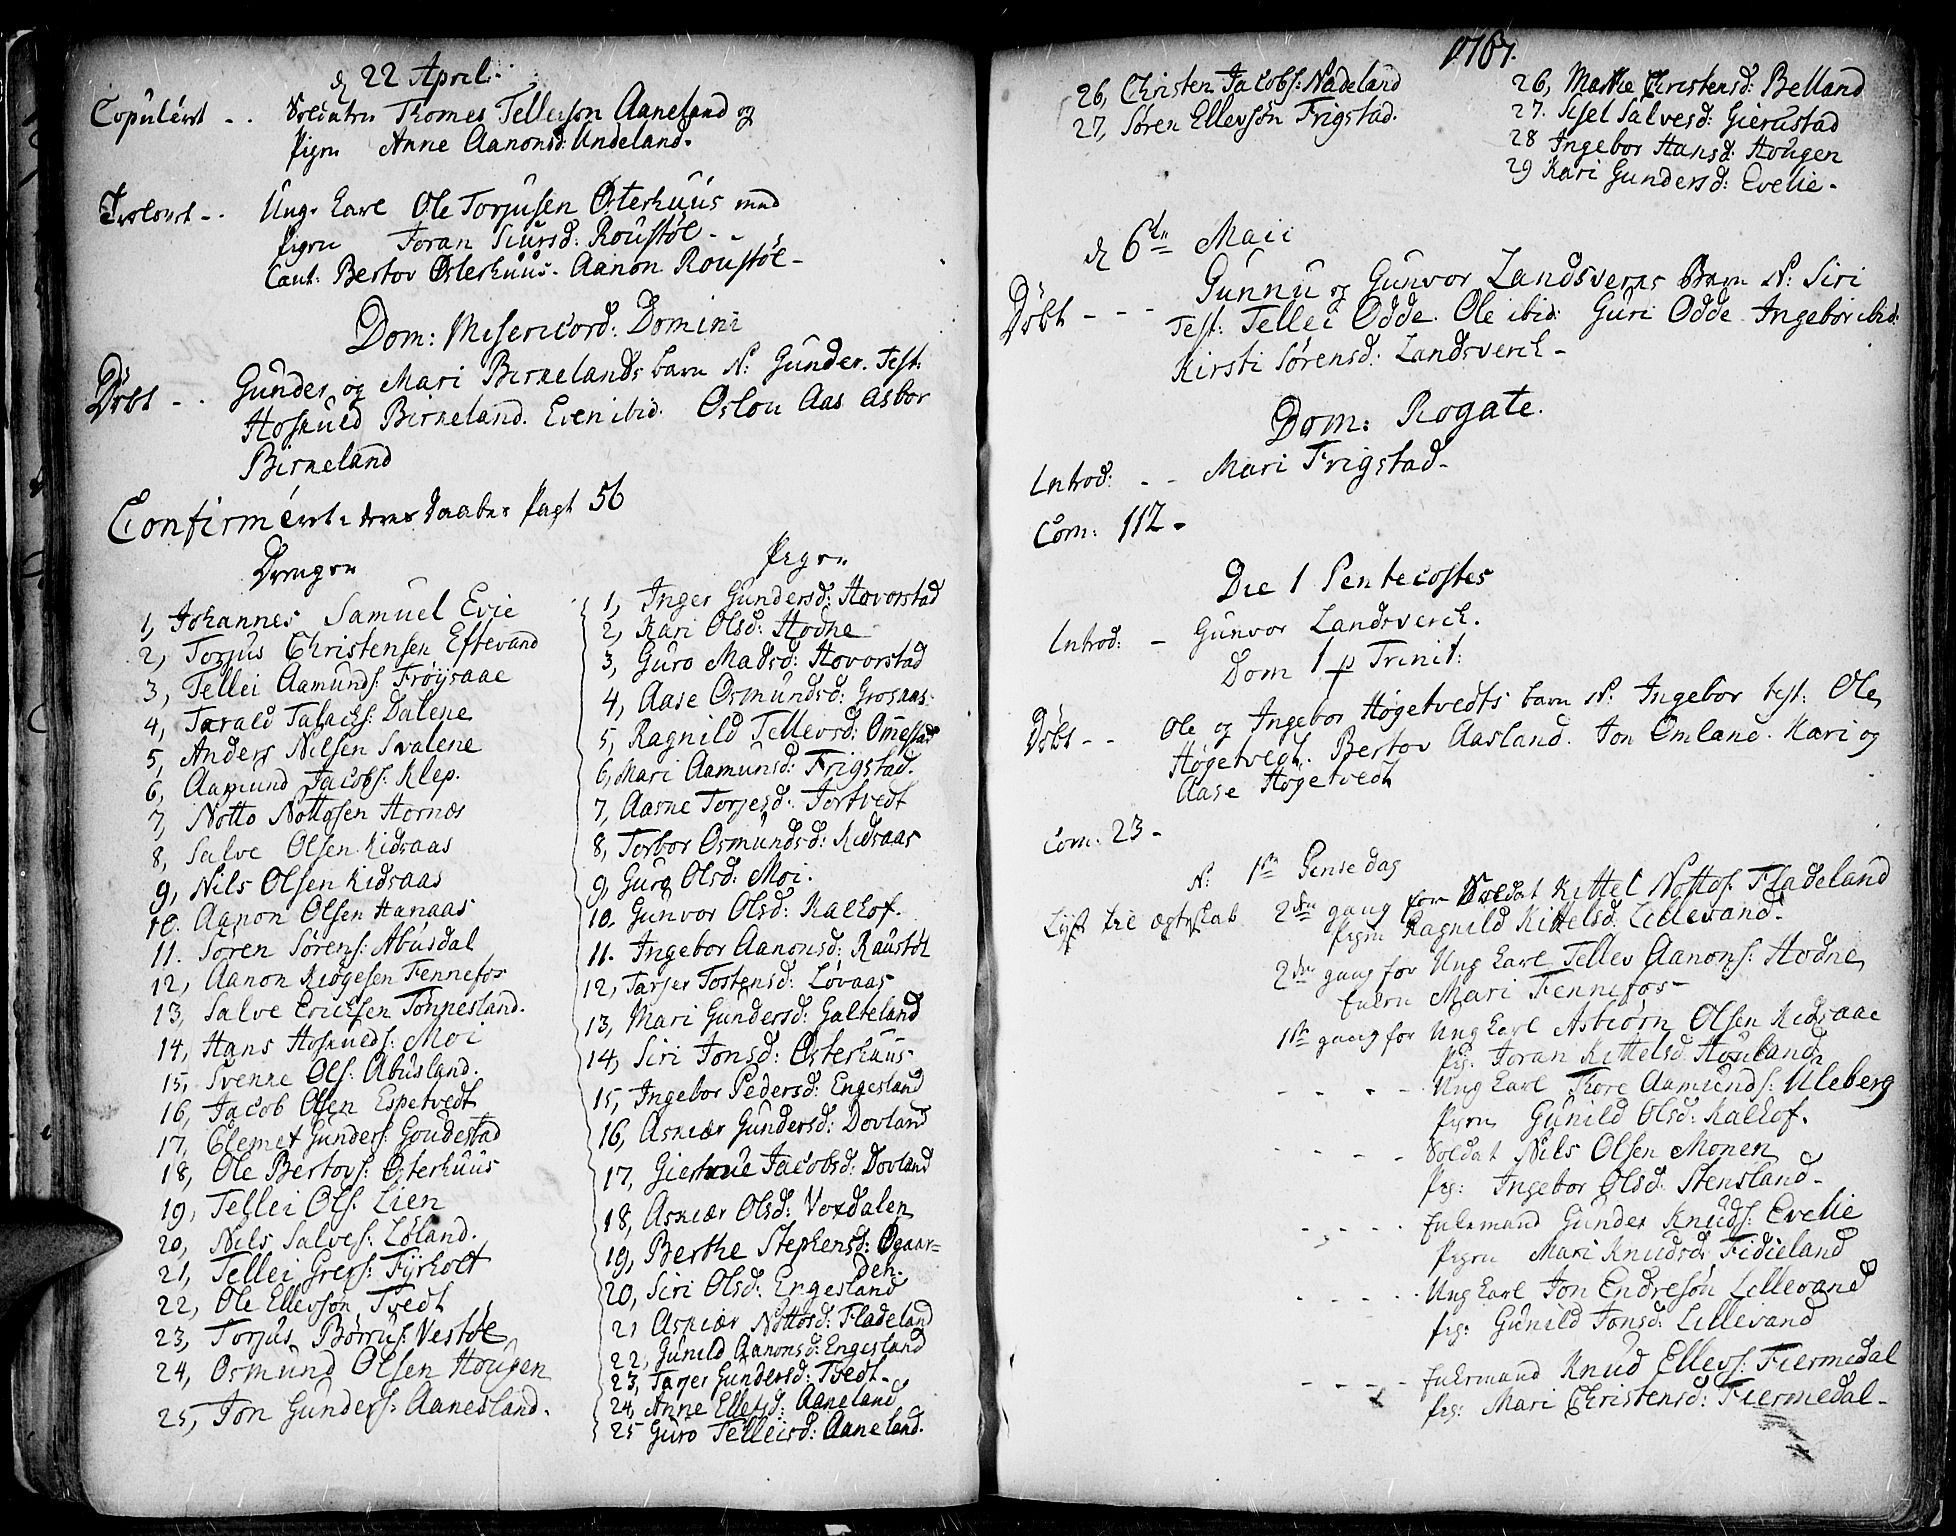 d 22 April:
Copulert - - Soldaten Thomes Tellefson Aaneland og
Pigen Anne Aanonsd: Undeland.
Trolovet - - Ung Karl Ole Torjusen Østerhuus med
Pigen Joran Siursd: Roustøl -
Caut: Bertov Østerhuus. Aanon Roustøl -
Dom: Misericord: Domini
Døbt - - Gunder og Mari Birkelands barn N: Gunder. Test:
Hoskuld Birkeland. Even ibid. Oslou Aas Asbor
Birkeland
Confirmeret i deres Daabes Pagt 56
Drenge
1, Johannes Samuel Evie
2, Torjus Christensen Eftevand
3, Tellei Aamunds: Frøysaae
4, Tarald Tasachs: Dalene
5, Anders Nilsen Svalene
6, Aamund Jacobs: Klep.
7, Notto Nottosen Hornes
8, Salve Olsen Kidsaas
9, Nils Olsen Kidsaas
10. Aanon Olsen Hanaas
11. Søren Sørens: Abusdal
12, Aanon Kiøgesen Fennefos
13, Salve Ericksen Tønnesland.
14, Hans Hoskulds: Moi
15, Svenne Ols: Abusland.
16, Jacob Olsen Espetvedt
17, Clemet Gunders: Goudestad
18, Ole Bertovs: Østerhuus
19, Tellei Ols: Lien
20, Nils Salves: Løland.
21, Tellei Gregs: Fyrholt
22, Ole Ellevson Tvedt
23, Torjus Børrus: Vestøl
24, Osmund Olsen Hougen
25, Jon Gunders: Aanesland.
Piger
1, Inger Gundersd: Hovorstad
2, Kari Olsd: Hodne
3, Guro Madsd: Hovorstad
4, Aase Osmundsd: Grosaas
5, Ragnild Tellevsd: Omestad
6, Mari Aamunsd: Frigstad.
7, Aasne Torjesd: Tortvedt
8, Torbor Osmundsd: Kidsaas
9, Guro Olsd: Moi.
10. Gunvor Olsd: Kalhof.
11. Ingebor Aanonsd: Raustøl
12, Tarjer Tostensd: Løvaas
13, Mari Gundersd: Galteland
14, Siri Jonsd: Østerhuus
15, Ingebor Pedersd: Engesland
16, Askiær Gundersd: Dovland
17, Giertrue Jacobsd: Dovland
18, Askiær Olsd: Voxdalen
19, Berthe Stephensd: Øgaar=
den.
20, Siri Olsd: Engesland
21 Askiær Nottosd: Fladeland
22, Gunild Aanonsd: Engesland
23, Tarjer Gundersd: Tvedt -
24, Anne Ellefsd: Aaneland
25 Guro Telleisd: Aaneland.
1767.
26, Christen Jacobs: Nadeland
27, Søren Ellevsøn Frigstad.
26, Marthe Christensd: Belland
27. Sisel Salvesd: Gierustad
28 Ingebor Hansd: Hougen
29 Kari Gundersd: Evelie -
d 6te Maii
Døbt - - - Gunnu og Gunvor Landsverks Barn N: Siri
Test: Tellei Odde. Ole ibid: Guri Odde Ingebor ibid:
Kirsti Sørensd: Landsverck -
Dom: Rogate.
Introd: - - Mari Frigstad -
Com: 112 -
Die 1 Pentecostes
Introd: - Gunvor Landsverck.
Dom 1 p Trinit:
Døbt - - Ole og Ingebor Høgetvedts barn N: Ingebor test: Ole
Høgetvedt. Bertov Aasland. Jon Omland. Kari og
Aase Høgetvedt
Com: 23 -
N: 1ste Pinsedag
Lyst til ægteskab 2den gang for Soldat Kittel Nottos: Fladeland
Pigen Ragnild Kittelsd: Lillevand.
2den gang for Ung Karl Tellev Aanons: Hodne
Enken Mari Fennefos -
1ste gang for Ung Karl Asbiørn Olsen Kidsaae
Pig: Joran Kittelsd: Houland
- - - - Ung Karl Thore Aamunds: Uleberg
Pigen Gunild Olsd: Kalhof.
- - - - Soldat Nils Olsen Monen
Pig: Ingebor Olsd: Stensland -
- - - - Enkemand Gunder Knuds: Evelie
Pigen Mari Knudsd: Fidieland
- - - - Ung Karl Jon Endreson Lillevand
Pig: Gunild Jonsd: Lillevand
- - - - Enkemand Knud Ellevs: Fiermedal
Pig: Mari Christensd: Fiermedal -